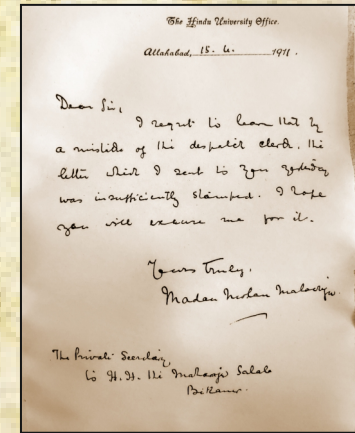 The Hindu University Office.
Allahabad, 15. 4. 1911.
Dear Sir,
I regret to learn that by
a mistake of the despatch clerk, the
letter which I sent to you yesterday
was insufficiently stamped. I hope
you will excuse me for it.
Yours truly,
Madan Mohan Malaviya
The Private Secretary
to H.H. the Maharaja Saheb
Bikaner.